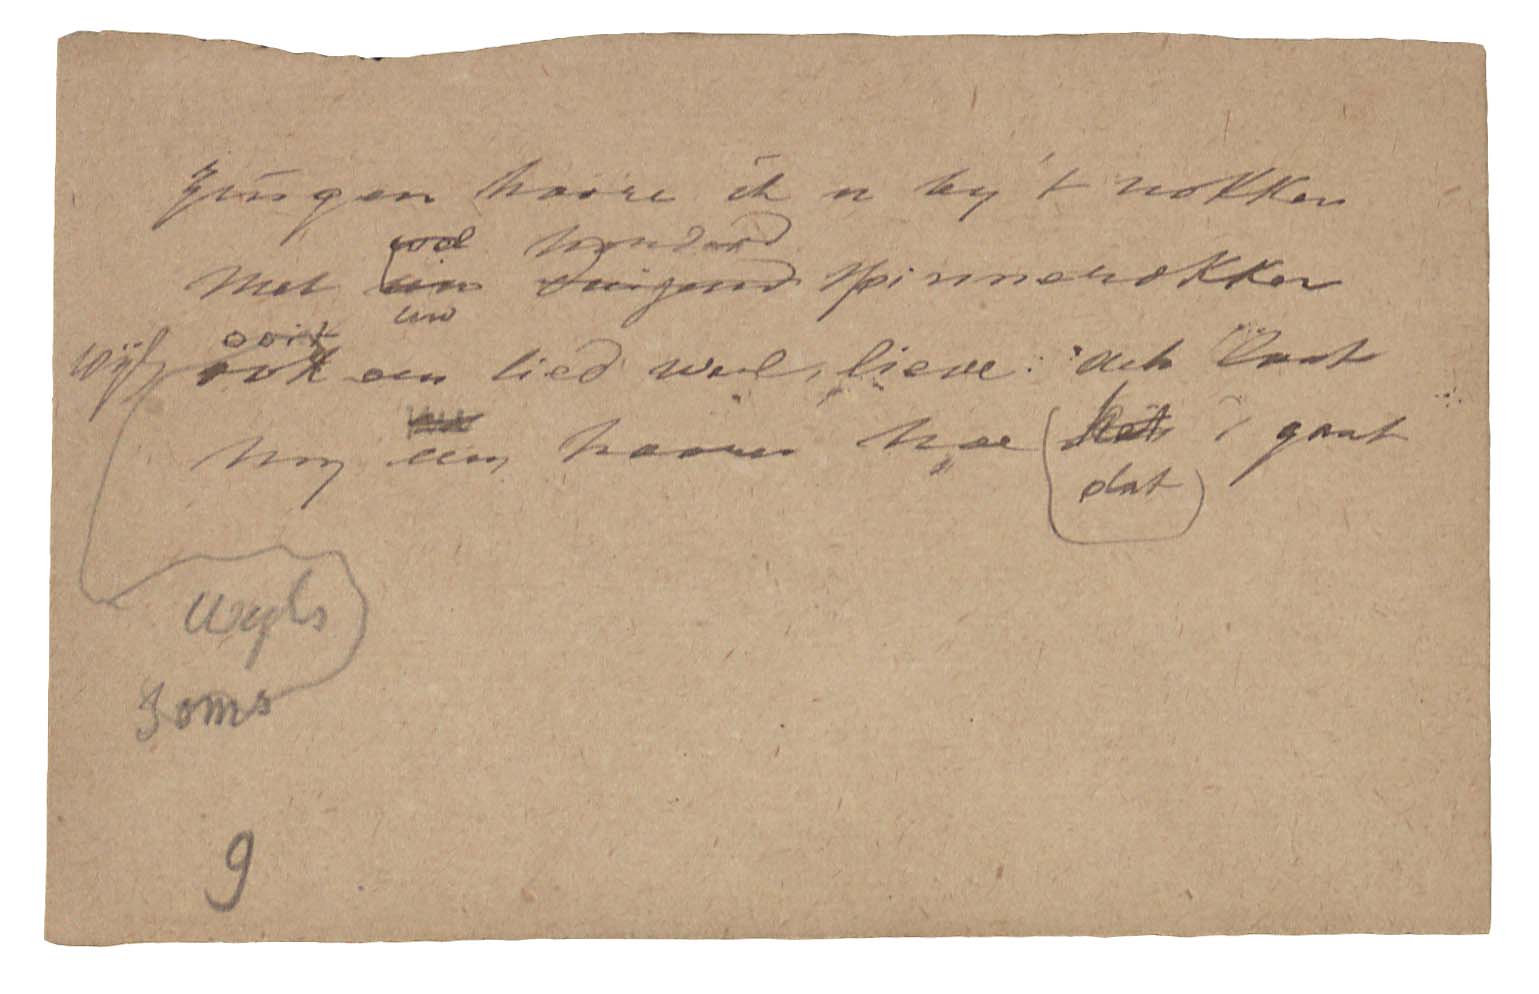 zingen hoore ik u by 't nokken
wel honderd
Met een duizend spinnerokken
uw
ooit
wijf, ook een lied wel, lieve: ach laat
my een hooren hoe het 't gaat
dat
wyls
soms
9